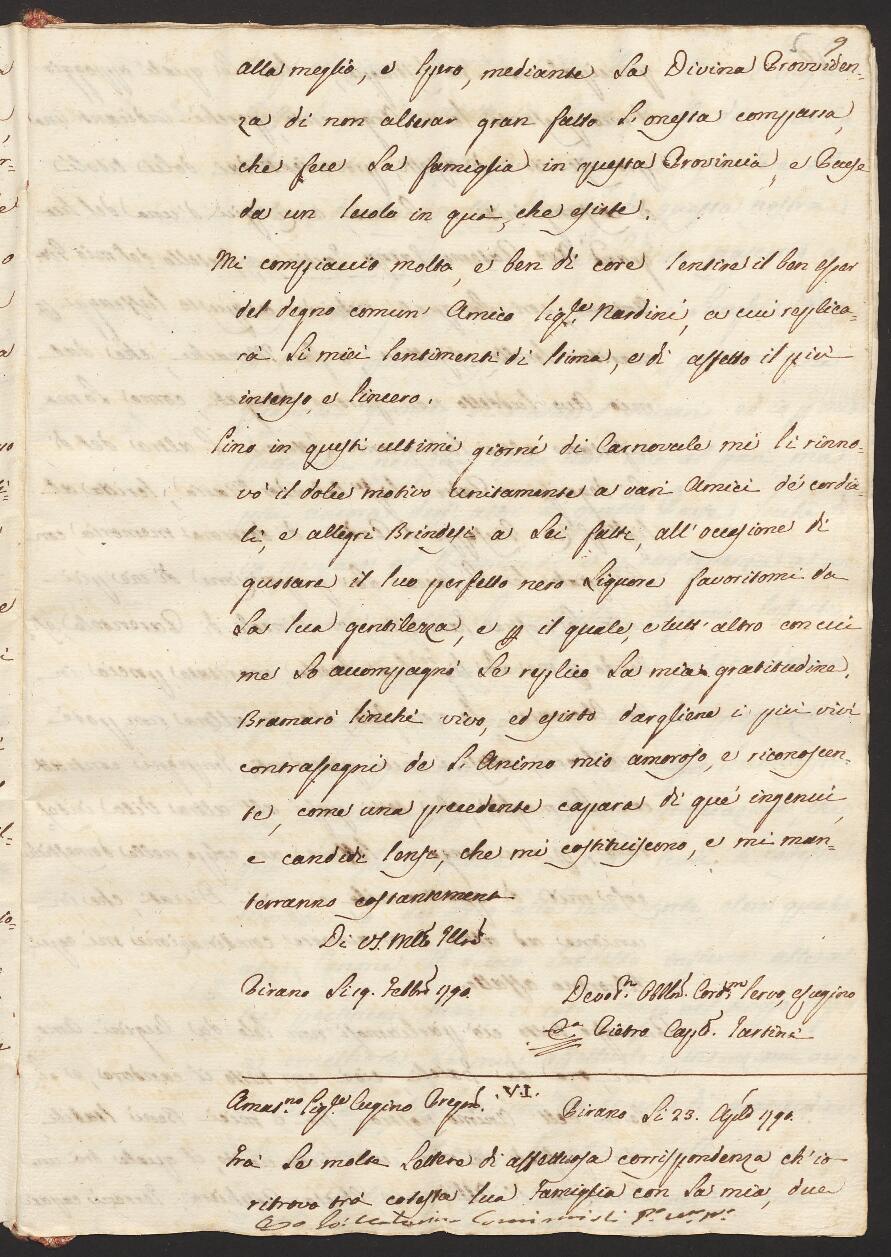 5 9
alla meglio, e spero, mediante la Divina Provviden=
za di non alterar gran fatto l'onesta comparsa,
che fece la famiglia in questa Provincia, e Paese
da un secolo in quà, che esiste.
Mi compiaccio molto, e ben di core sentire il ben esser
del degno comun' Amico sig.re Nardini, a cui replica=
rà li miei sentimenti di stima, e di affetto il più
intenso, e sincero.
Sino in questi ultimi giorni di Carnovale mi si rinno=
vò il dolce motivo unitamente a vari Amici de' cordia=
li, e allegri Brindesi a Lei fatti, all'occasione di
gustare il suo perfetto nero Liquore favoritomi da
la sua gentilezza, e p il quale, e tutt'altro con cui
me lo accompagnò Le replico la mia gratitudine.
Bramarò sinchè vivo, ed esisto dargliene i più vivi
contrassegni de l'Animo mio amoroso, e riconoscen=
te, come una precedente capara di que' ingenui,
e candidi sensi, che mi costituiscono, e mi man=
terranno costantemente
Di V.S. Mlto Illre
Pirano li 19. Febbr. 1790.
Devot.mo Obbl.mo Cord.mo servo, e cugino
Pietro Cap.o Tartini
LV.
Amat.mo sig.re Cugino Preg.mo
Pirano li 23. Aple 1790.
Frà le molte lettere di affettuosa corrispondenza ch'io
ritrovo trà cotesta sua Famiglia con la mia, due